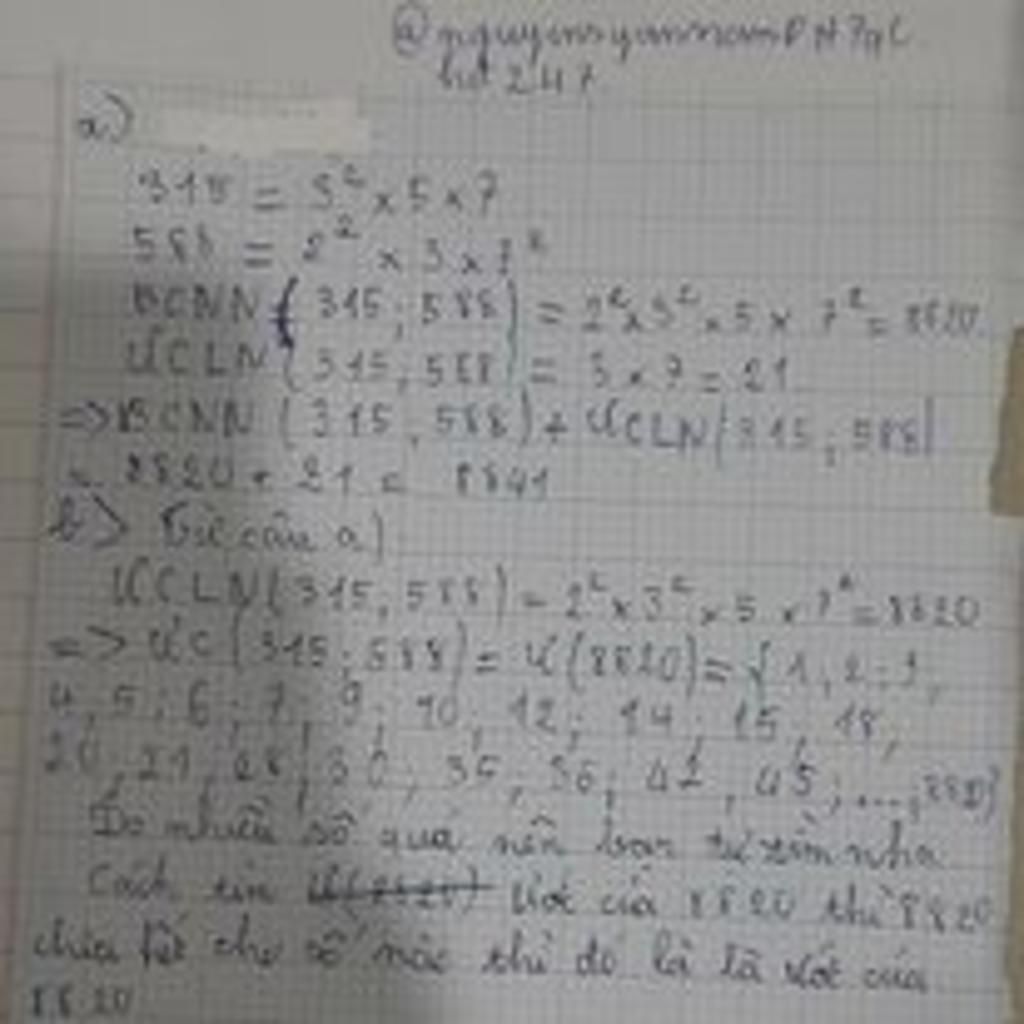 a)
315 = 3² × 5 × 7
588 = 2² × 3 × 7²
BCNN (315; 588) = 2² × 3² × 5 × 7² = 8820
ƯCLN (315; 588) = 3 × 7 = 21
=> BCNN (315; 588) + ƯCLN (315; 588)
= 8820 + 21 = 8841
b) Từ câu a)
ƯCLN (315; 588) = 2² × 3² × 5 × 7² = 8820
=> ƯC (315; 588) = Ư(8820) = { 1; 2; 3;
4; 5; 6; 7; 9; 10; 12; 14; 15; 18;
20; 21; 28; 30; 35; 36; 42; 45; ...; 8820}
Do nhiều số quá nên bạn tự tìm nha
Cách tìm Ư(8820) Ước của 8820 thì 8820
chia hết cho số nào thì đó là là ước của
8820